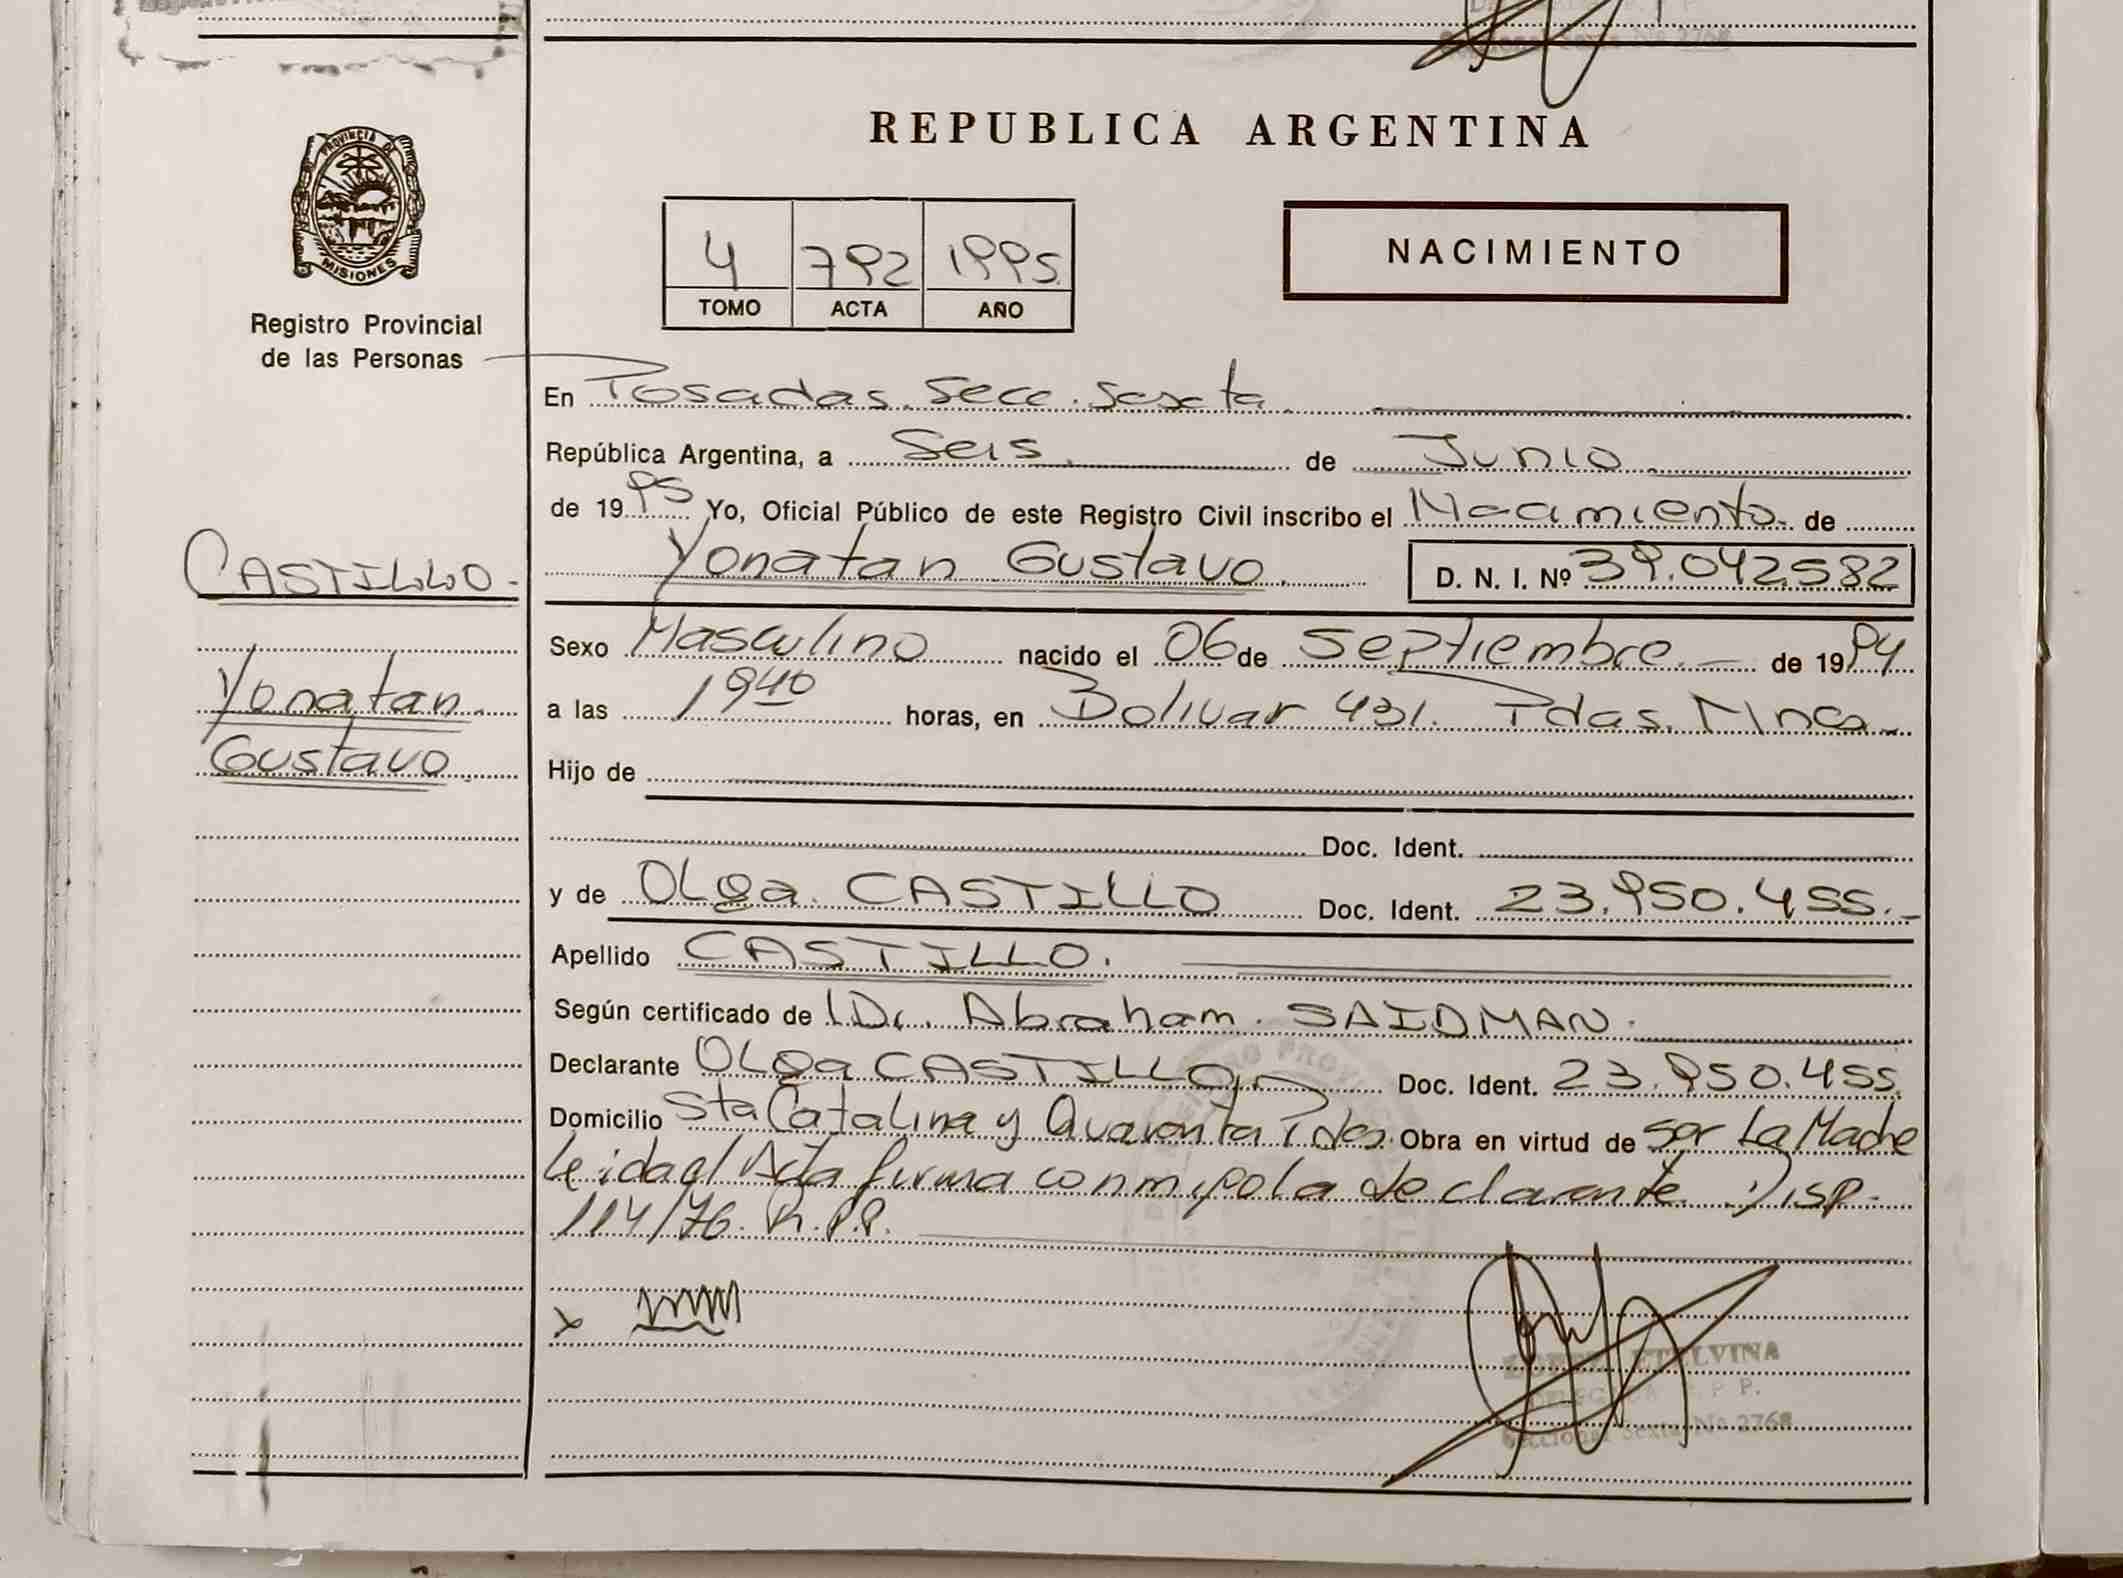 REPUBLICA ARGENTINA
PROVINCIA DE
MISIONES
Registro Provincial
de las Personas
4 792 1995
TOMO ACTA AÑO
NACIMIENTO
En Posadas. Secc. Sexta.
República Argentina, a Seis. de Junio
de 1995 Yo, Oficial Público de este Registro Civil inscribo el Nacimiento de
CASTILLO.
Yonatan Gustavo. D. N. I. Nº 39.042.582
Sexo Masculino nacido el 06 de Septiembre. de 1994
Yonatan.
Gustavo.
a las 1940 horas, en Bolivar 431. Pdas. Mnes.
Hijo de
Doc. Ident.
y de OLga. CASTILLO Doc. Ident. 23.950.455.
Apellido CASTILLO.
Según certificado de Dr. Abraham. SAIDMAN.
Declarante OLga CASTILLO Doc. Ident. 23.950.455
Domicilio Sta Catalina y Quaranta Pdas. Obra en virtud de ser La Madre
Leida el Acta firma conmigo la declarante. Disp.
114/76. R.P.P.
x
ETELVINA
DELEGADA R. P. P.
Seccional Sexta Nº 2768